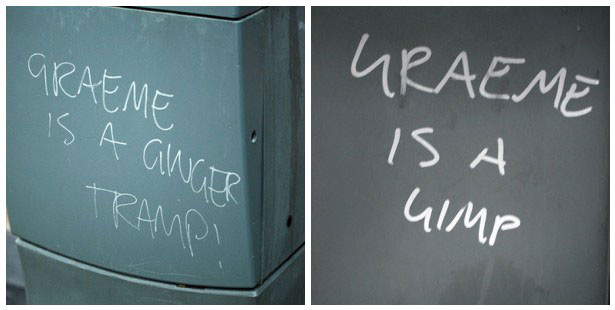 GRAEME
IS A GINGER
TRAMP!
GRAEME
IS A
GIMP